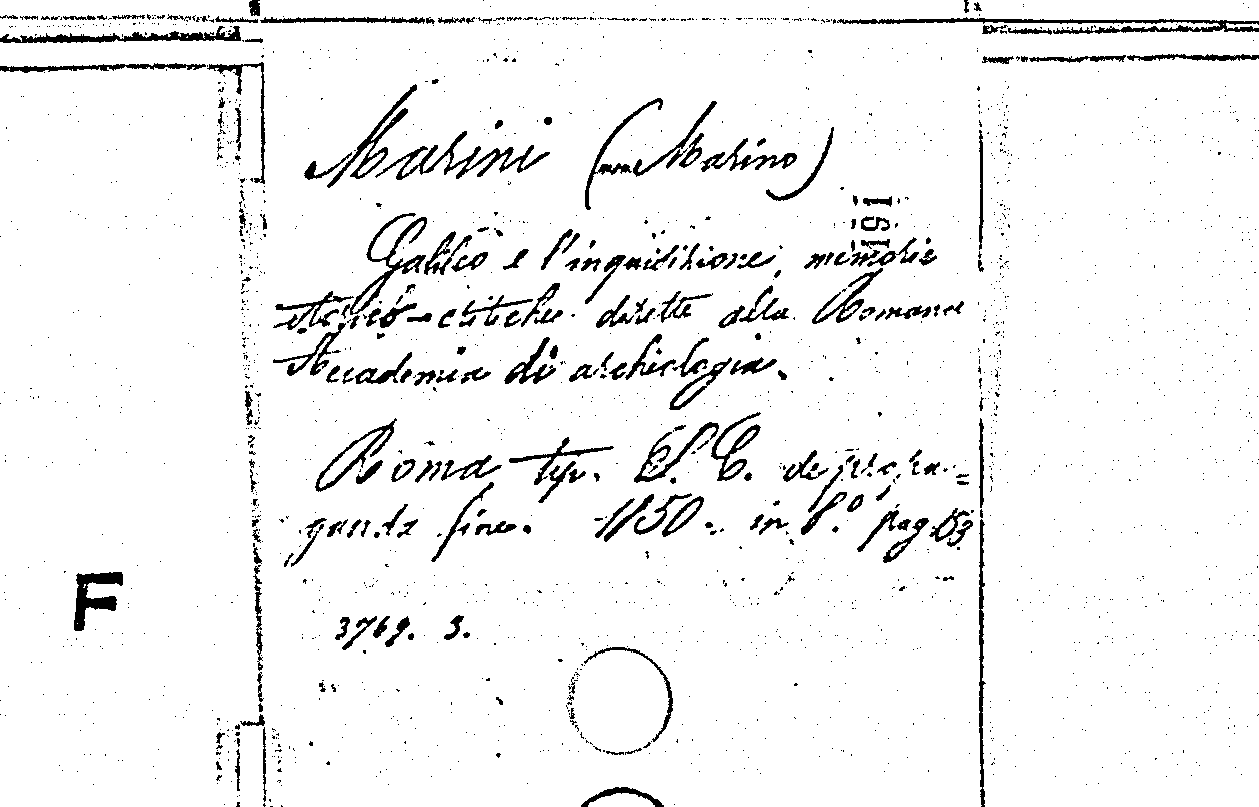 Marini (mons Marino)
191
Galileo e l'inquisizione, memorie
storico-critiche dirette alla Romana
Accademia di archeologia.
Roma tip. S. C. de propa=
ganda fine. 1850. in 8.º pag. 153
3769. 3.
F